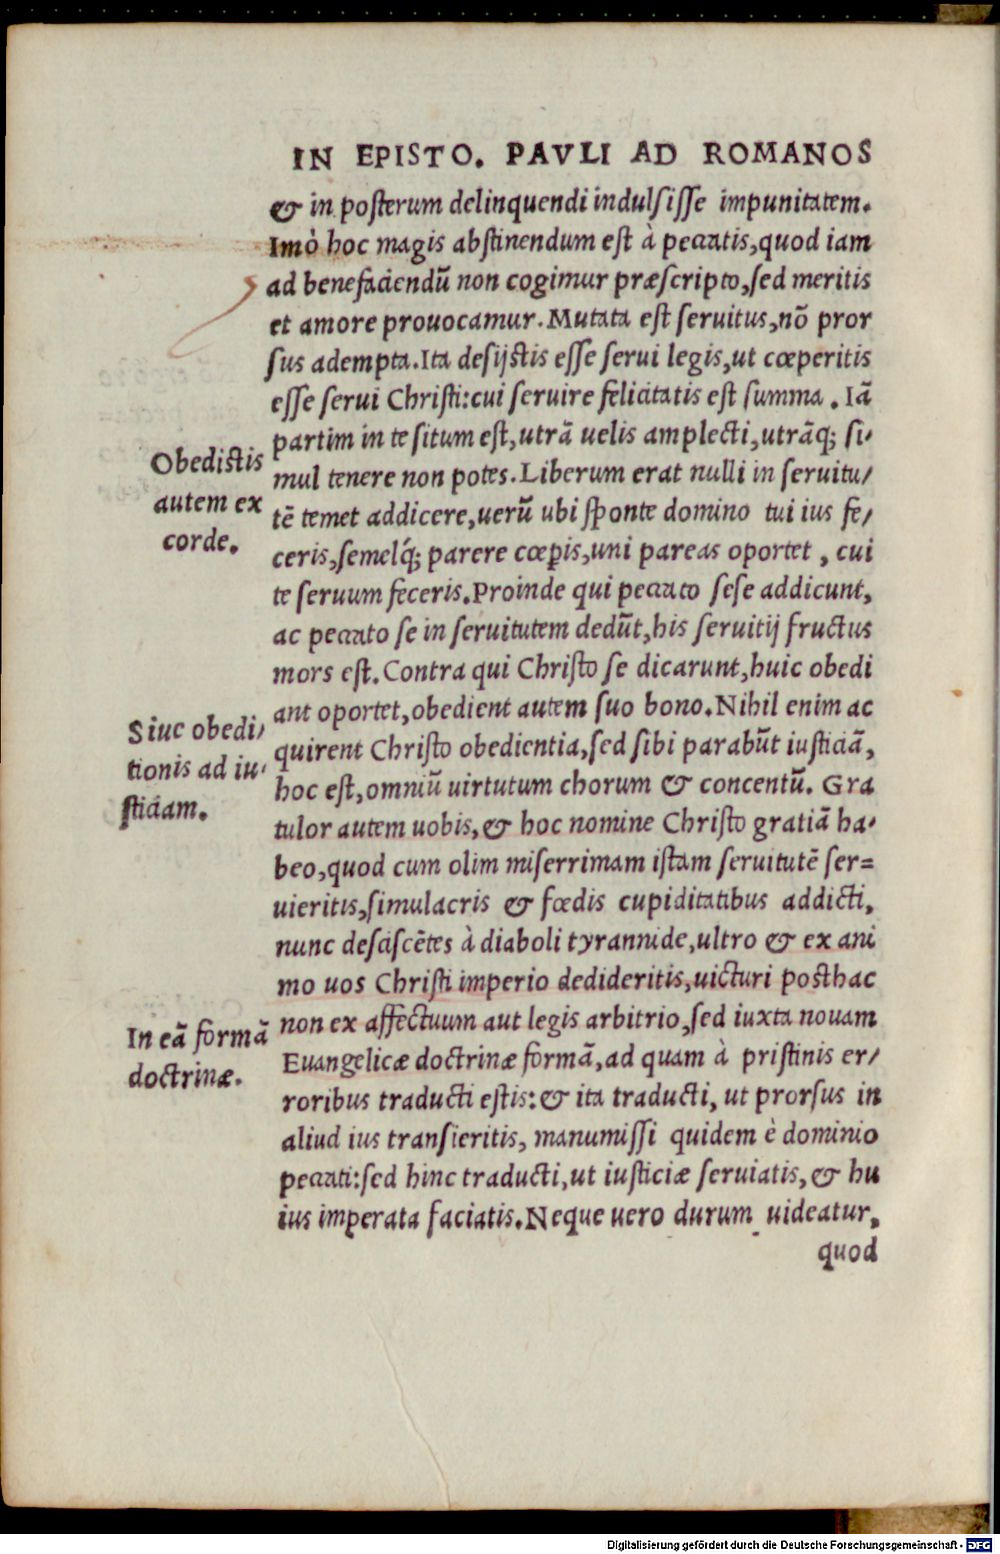 IN EPISTO. PAVLI AD ROMANOS
& in posterum delinquendi indulsisse impunitatem.
Imò hoc magis abstinendum est à peccatis, quod iam
ad benefaciendũ non cogimur præscripto, sed meritis
et amore prouocamur. Mutata est seruitus, nõ pror
sus adempta. Ita desijstis esse serui legis, ut cœperitis
esse serui Christi: cui seruire felicitatis est summa. Iã
partim in te situm est, utrã uelis amplecti, utrãq; si-
mul tenere non potes. Liberum erat nulli in seruitu-
tẽ temet addicere, uerũ ubi sponte domino tui ius fe-
ceris, semelq́; parere cœpis, uni pareas oportet, cui
te seruum feceris. Proinde qui peccato sese addicunt,
ac peccato se in seruitutem dedũt, his seruitij fructus
mors est. Contra qui Christo se dicarunt, huic obedi
ant oportet, obedient autem suo bono. Nihil enim ac
quirent Christo obedientia, sed sibi parabũt iusticiã,
hoc est, omniũ uirtutum chorum & concentũ. Gra
tulor autem uobis, & hoc nomine Christo gratiã ha-
beo, quod cum olim miserrimam istam seruitutẽ ser=
uieritis, simulacris & fœdis cupiditatibus addicti,
nunc desciscẽtes à diaboli tyrannide, ultro & ex ani
mo uos Christi imperio dedideritis, uicturi posthac
non ex affectuum aut legis arbitrio, sed iuxta nouam
Euangelicæ doctrinæ formã, ad quam à pristinis er-
roribus traducti estis: & ita traducti, ut prorsus in
aliud ius transieritis, manumissi quidem è dominio
peccati: sed hinc traducti, ut iusticiæ seruiatis, & hu
ius imperata faciatis. Neque uero durum uideatur,
quod
Obedistis
autem ex
corde.
Siue obedi-
tionis ad iu-
sticiam.
In eã formã
doctrinæ.
Digitalisierung gefördert durch die Deutsche Forschungsgemeinschaft - DFG